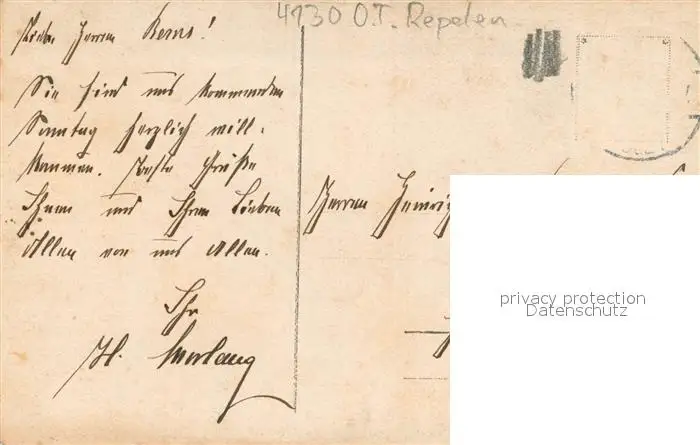 4130 O.T. Repelen
Lieber Herrn Kerns!
Sie sind uns kommenden
Sonntag herzlich will-
kommen. Beste Grüße
Ihnen und Ihren Lieben
Allen von uns Allen.
Ihr
H.
Herrn Heinrich
privacy protection
Datenschutz